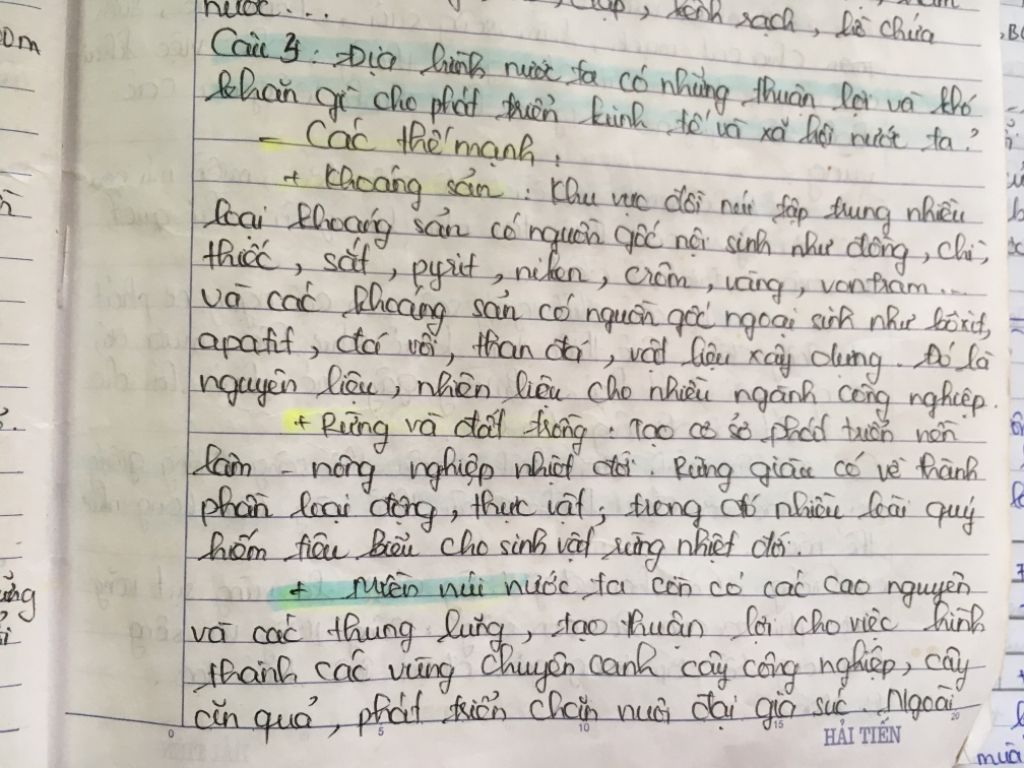 nước... , đập, kênh rạch, hồ chứa
Câu 3: Địa hình nước ta có những thuận lợi và khó
khăn gì cho phát triển kinh tế và xã hội nước ta?
- Các thế mạnh:
+ Khoáng sản: Khu vực đồi núi tập trung nhiều
loại khoáng sản có nguồn gốc nội sinh như đồng, chì,
thiếc, sắt, pyrit, niken, crôm, vàng, vonfram...
và các khoáng sản có nguồn gốc ngoại sinh như bôxit,
apatit, đá vôi, than đá, vật liệu xây dựng. Đó là
nguyên liệu, nhiên liệu cho nhiều ngành công nghiệp.
+ Rừng và đất trồng: Tạo cơ sở phát triển nền
lâm - nông nghiệp nhiệt đới. Rừng giàu có về thành
phần loài động, thực vật; trong đó nhiều loài quý
hiếm tiêu biểu cho sinh vật rừng nhiệt đới.
+ Miền núi nước ta còn có các cao nguyên
và các thung lũng, tạo thuận lợi cho việc hình
thành các vùng chuyên canh cây công nghiệp, cây
ăn quả, phát triển chăn nuôi đại gia súc. Ngoài
0 5 10 15 20
HẢI TIẾN